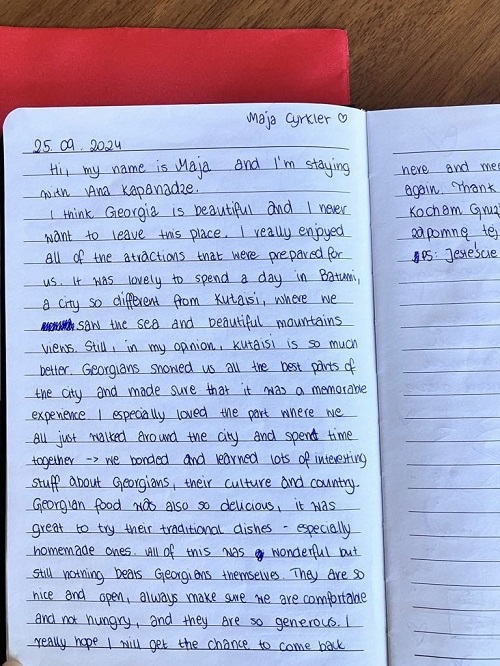 Maja Cyrkler ♡
25.09.2024
Hi, my name is Maja and I'm staying
with Ana Kapanadze.
I think Georgia is beautiful and I never
want to leave this place. I really enjoyed
all of the atractions that were prepared for
us. It was lovely to spend a day in Batumi,
a city so different from Kutaisi, where we
saw the sea and beautiful mountains
views. Still, in my opinion, Kutaisi is so much
better. Georgians showed us all the best parts of
the city and made sure that it was a memorable
experience. I especially loved the part where we
all just walked around the city and spent time
together -> we bonded and learned lots of interesting
stuff about Georgians, their culture and country.
Georgian food was also so delicious, it was
great to try their traditional dishes - especially
homemade ones. All of this was wonderful but
still nothing beats Georgians themselves. They are so
nice and open, always make sure we are comfortable
and not hungry, and they are so generous. I
really hope I will get the chance to come back
here and mee
again. Thank
Kocham Gruz
zapomnę tej
PS: Jesteście